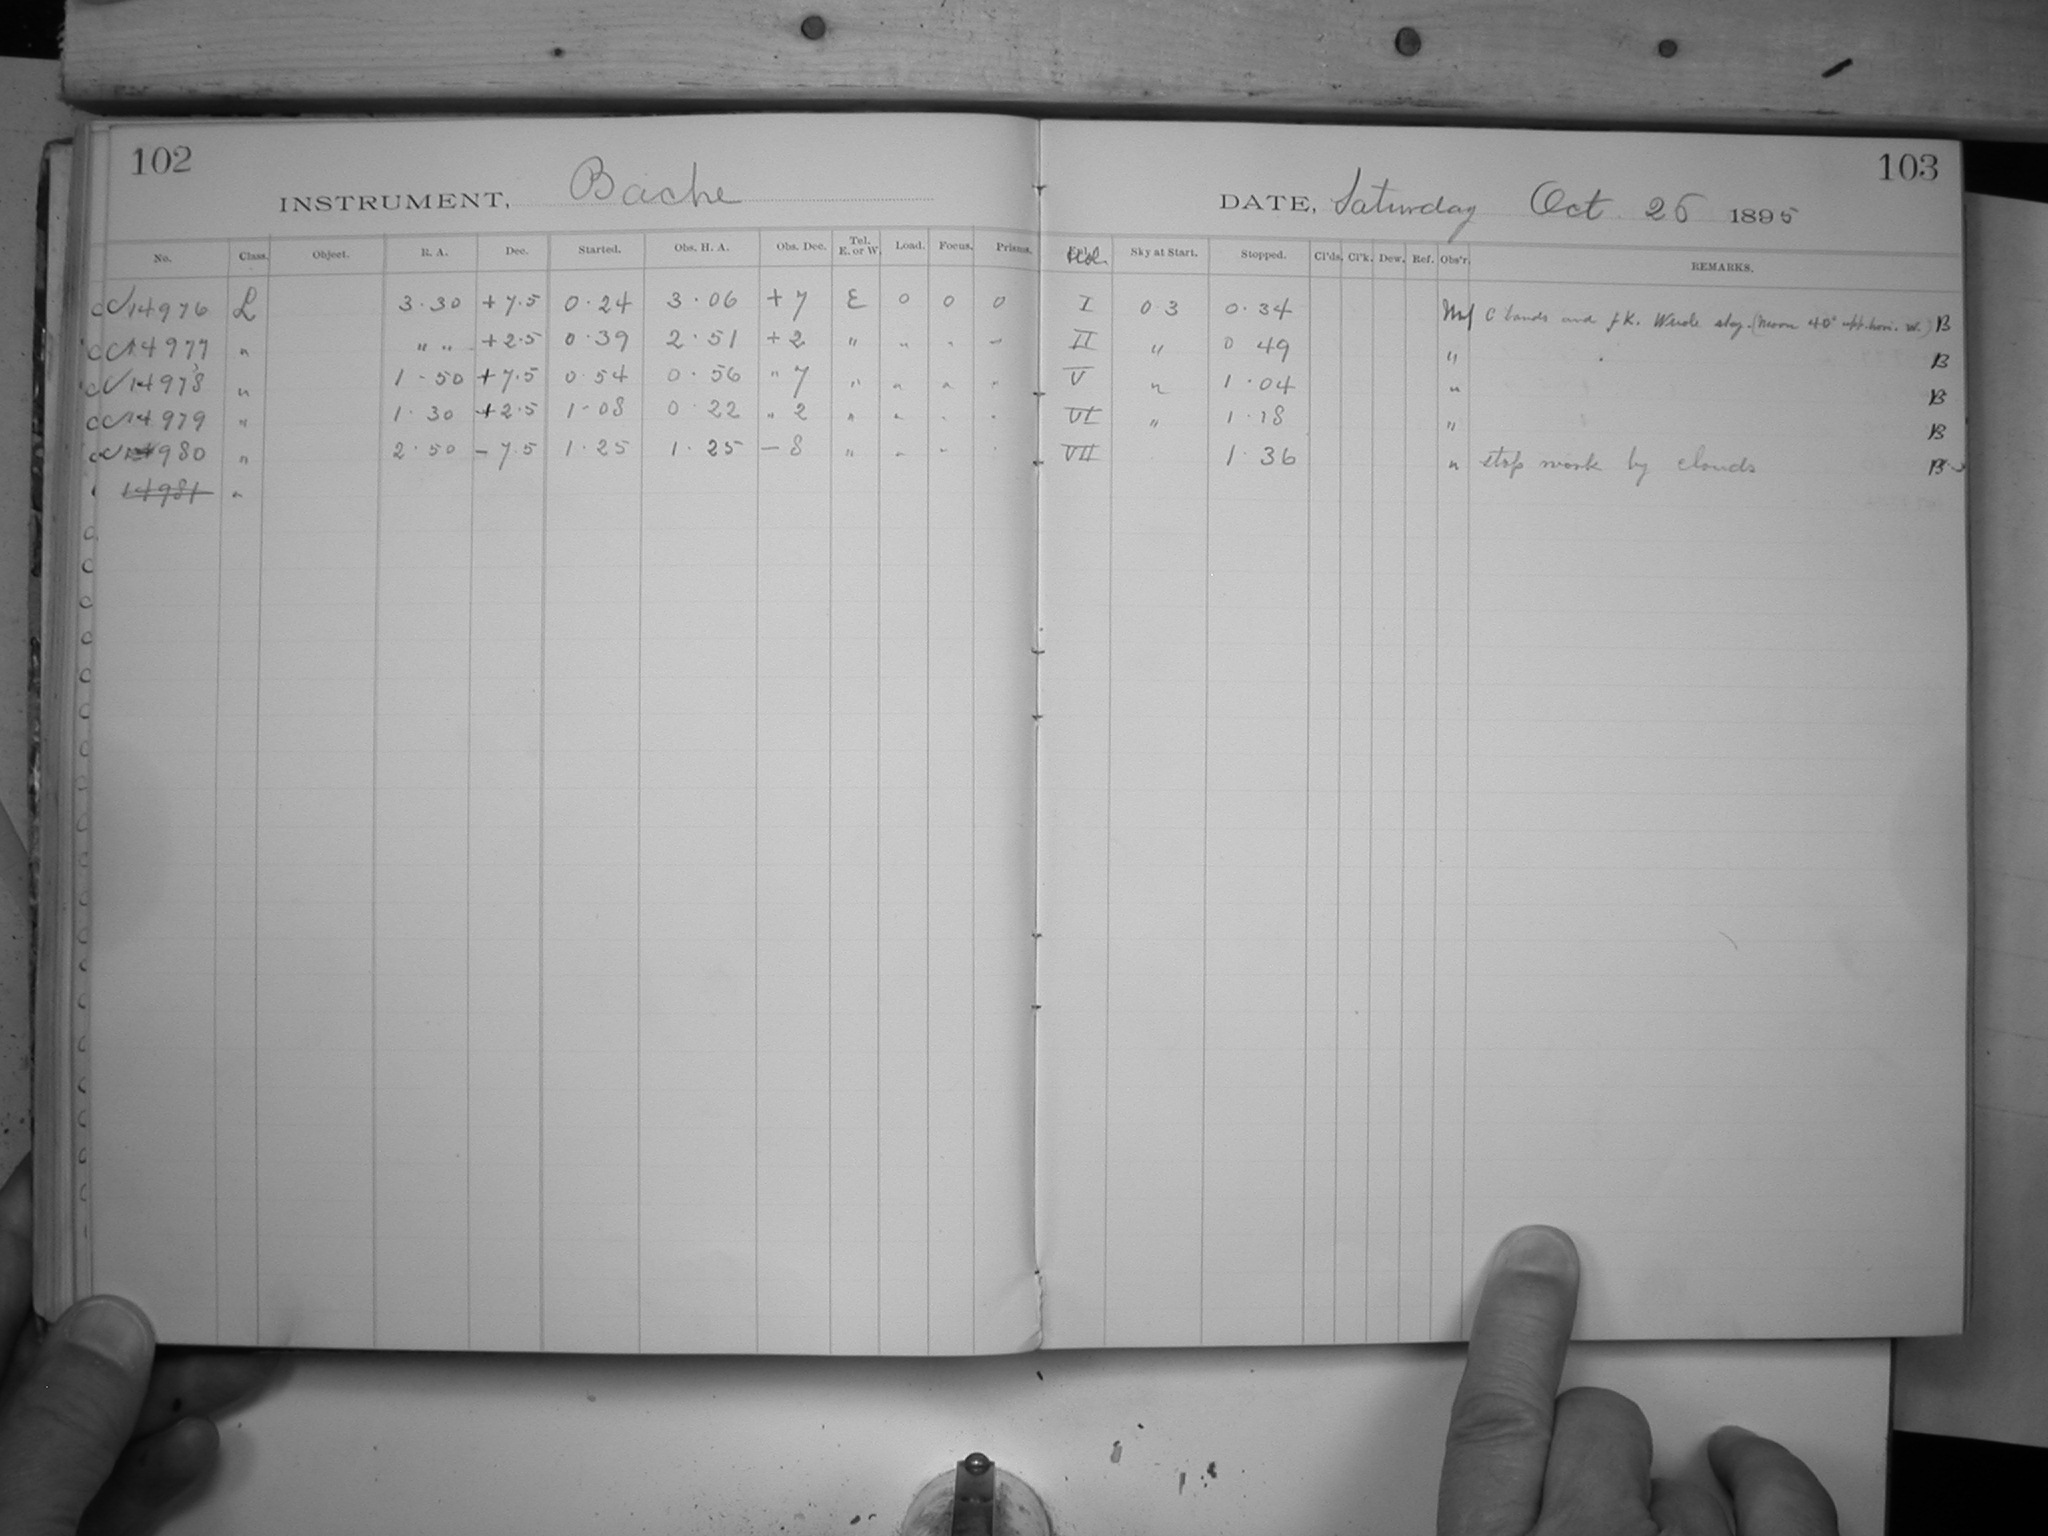 102
103
INSTRUMENT, Bache
DATE, Saturday Oct 26 1895
No. Class. Object. R. A. Dec. Started. Obs. H. A. Obs. Dec. Tel. E. or W. Load. Focus. Prisms. Sky at Start. Stopped. Cl'ds. Cl'k. Dew. Ref. Obs'r. REMARKS.
14976 L 3·30 +7.5 0·24 3·06 +7 E 0 0 0 I 0.3 0·34 C bands and (Moon 40° w.) B
14977 " " " +2.5 0·39 2·51 +2 " " " " II " 0 49 " B
14978 " 1·50 +7.5 0·54 0·56 " 7 " " " " V " 1·04 " B
14979 " 1·30 +2.5 1·08 0·22 " 2 " " " " VI " 1·18 " B
14980 " 2·50 -7.5 1·25 1·25 -8 " " " " VII 1·36 " stop work by clouds B
14981 "